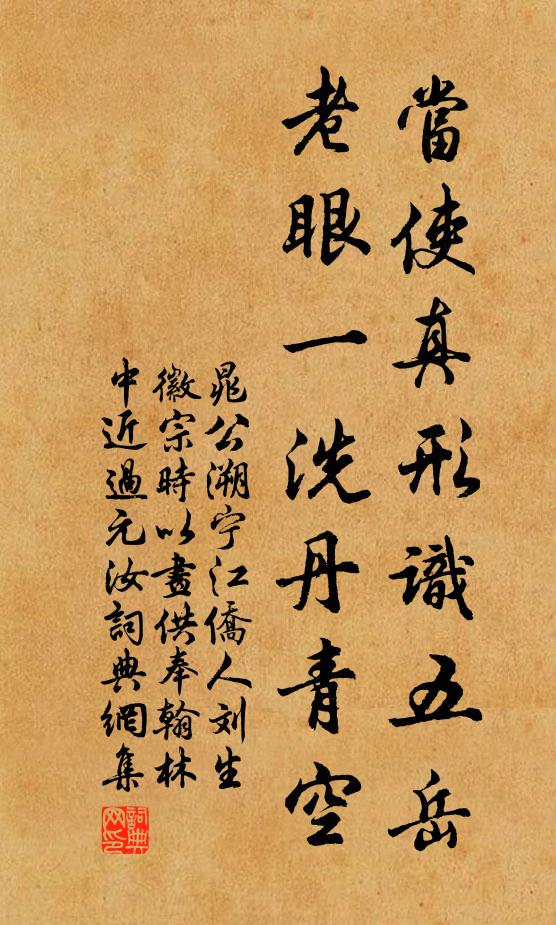 當使真形識五岳
老眼一洗丹青空
晁公溯宁江僑人刘生
徽宗時以畫供奉翰林
中近過元汝詞典網集
詞典网印